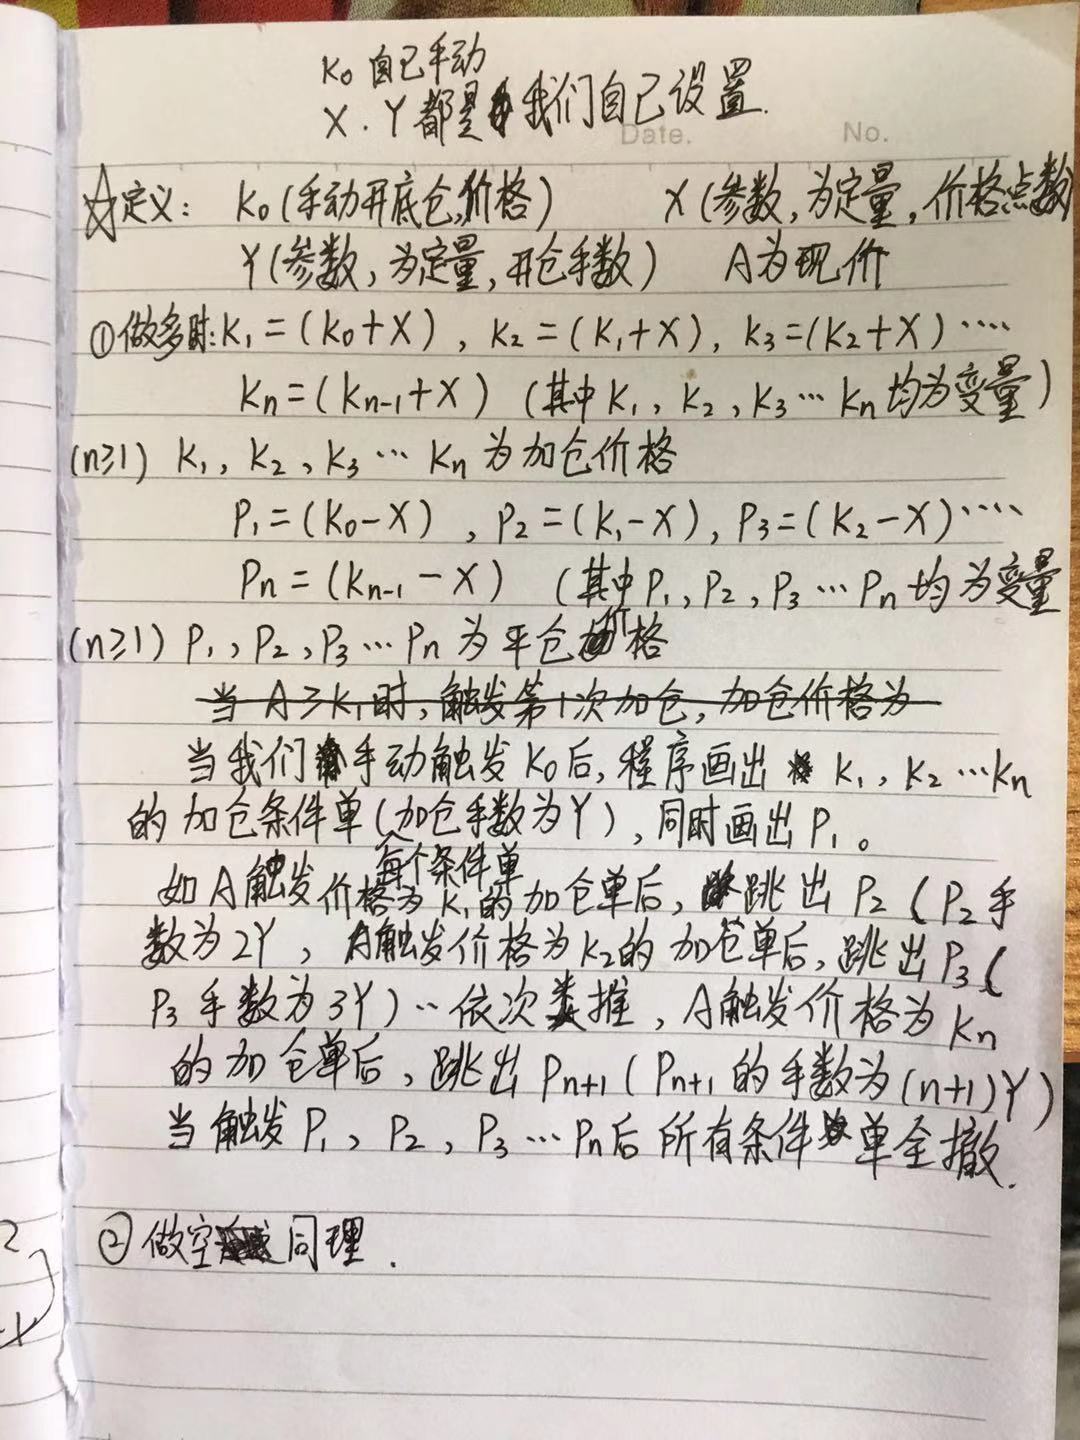 K₀ 自己手动
X．Y都是我们自己设置．
Date. No.
☆定义： K₀(手动开底仓,价格) X(参数,为定量,价格点数)
Y(参数,为定量,开仓手数) A为现价
①做多时:K₁=(K₀+X),K₂=(K₁+X),K₃=(K₂+X)····
Kn=(Kn-1+X) (其中K₁,K₂,K₃…Kn均为变量)
(n≥1) K₁,K₂、K₃…Kn为加仓价格
P₁=(K₀-X),P₂=(K₁-X),P₃=(K₂-X)····
Pn=(Kn-1-X) (其中P₁,P₂,P₃…Pn均为变量
(n≥1) P₁,P₂,P₃…Pn为平仓价格
当A≥K₁时,触发第1次加仓,加仓价格为
当我们手动触发K₀后,程序画出K₁,K₂…Kn
的加仓条件单(加仓手数为Y),同时画出P₁。
每个条件单
如A触发价格为K₁的加仓单后,跳出P₂(P₂手
数为2Y,A触发价格为K₂的加仓单后,跳出P₃(
P₃手数为3Y)··依次类推,A触发价格为Kn
的加仓单后,跳出Pn+1(Pn+1的手数为(n+1)Y)
当触发P₁,P₂,P₃…Pn后所有条件单全撤.
②做空同理.